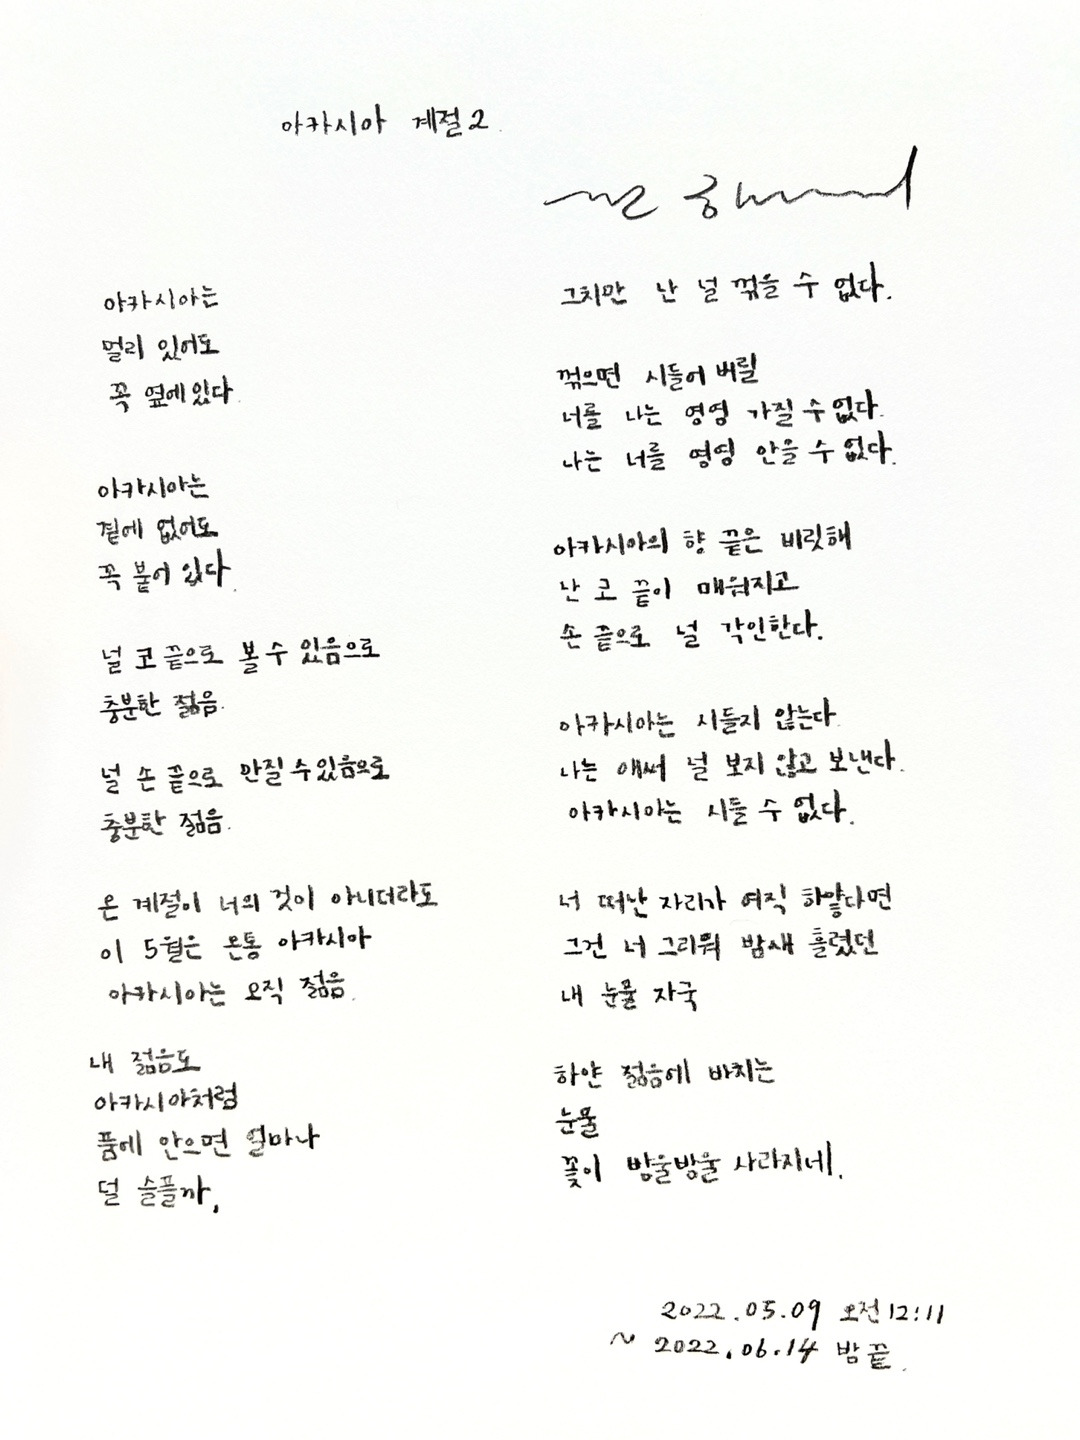 아카시아 계절2.
아카시아는
멀리 있어도
꼭 옆에 있다.
아카시아는
곁에 없어도
꼭 붙어 있다.
널 코 끝으로 볼 수 있음으로
충분한 젊음.
널 손 끝으로 만질 수 있음으로
충분한 젊음.
온 계절이 너의 것이 아니더라도
이 5월은 온통 아카시아
아카시아는 오직 젊음.
내 젊음도
아카시아처럼
품에 안으면 얼마나
덜 슬플까,
그치만 난 널 꺾을 수 없다.
꺾으면 시들어 버릴
너를 나는 영영 가질 수 없다.
나는 너를 영영 안을 수 없다.
아카시아의 향 끝은 비릿해
난 코 끝이 매워지고
손 끝으로 널 각인한다.
아카시아는 시들지 않는다.
나는 애써 널 보지 않고 보낸다.
아카시아는 시들 수 없다.
너 떠난 자리가 여직 하얗다면
그건 너 그리워 밤새 흘렸던
내 눈물 자국
하얀 젊음에 바치는
눈물
꽃이 방울방울 사라지네.
2022.05.09 오전 12:11
~ 2022.06.14 밤 끝.